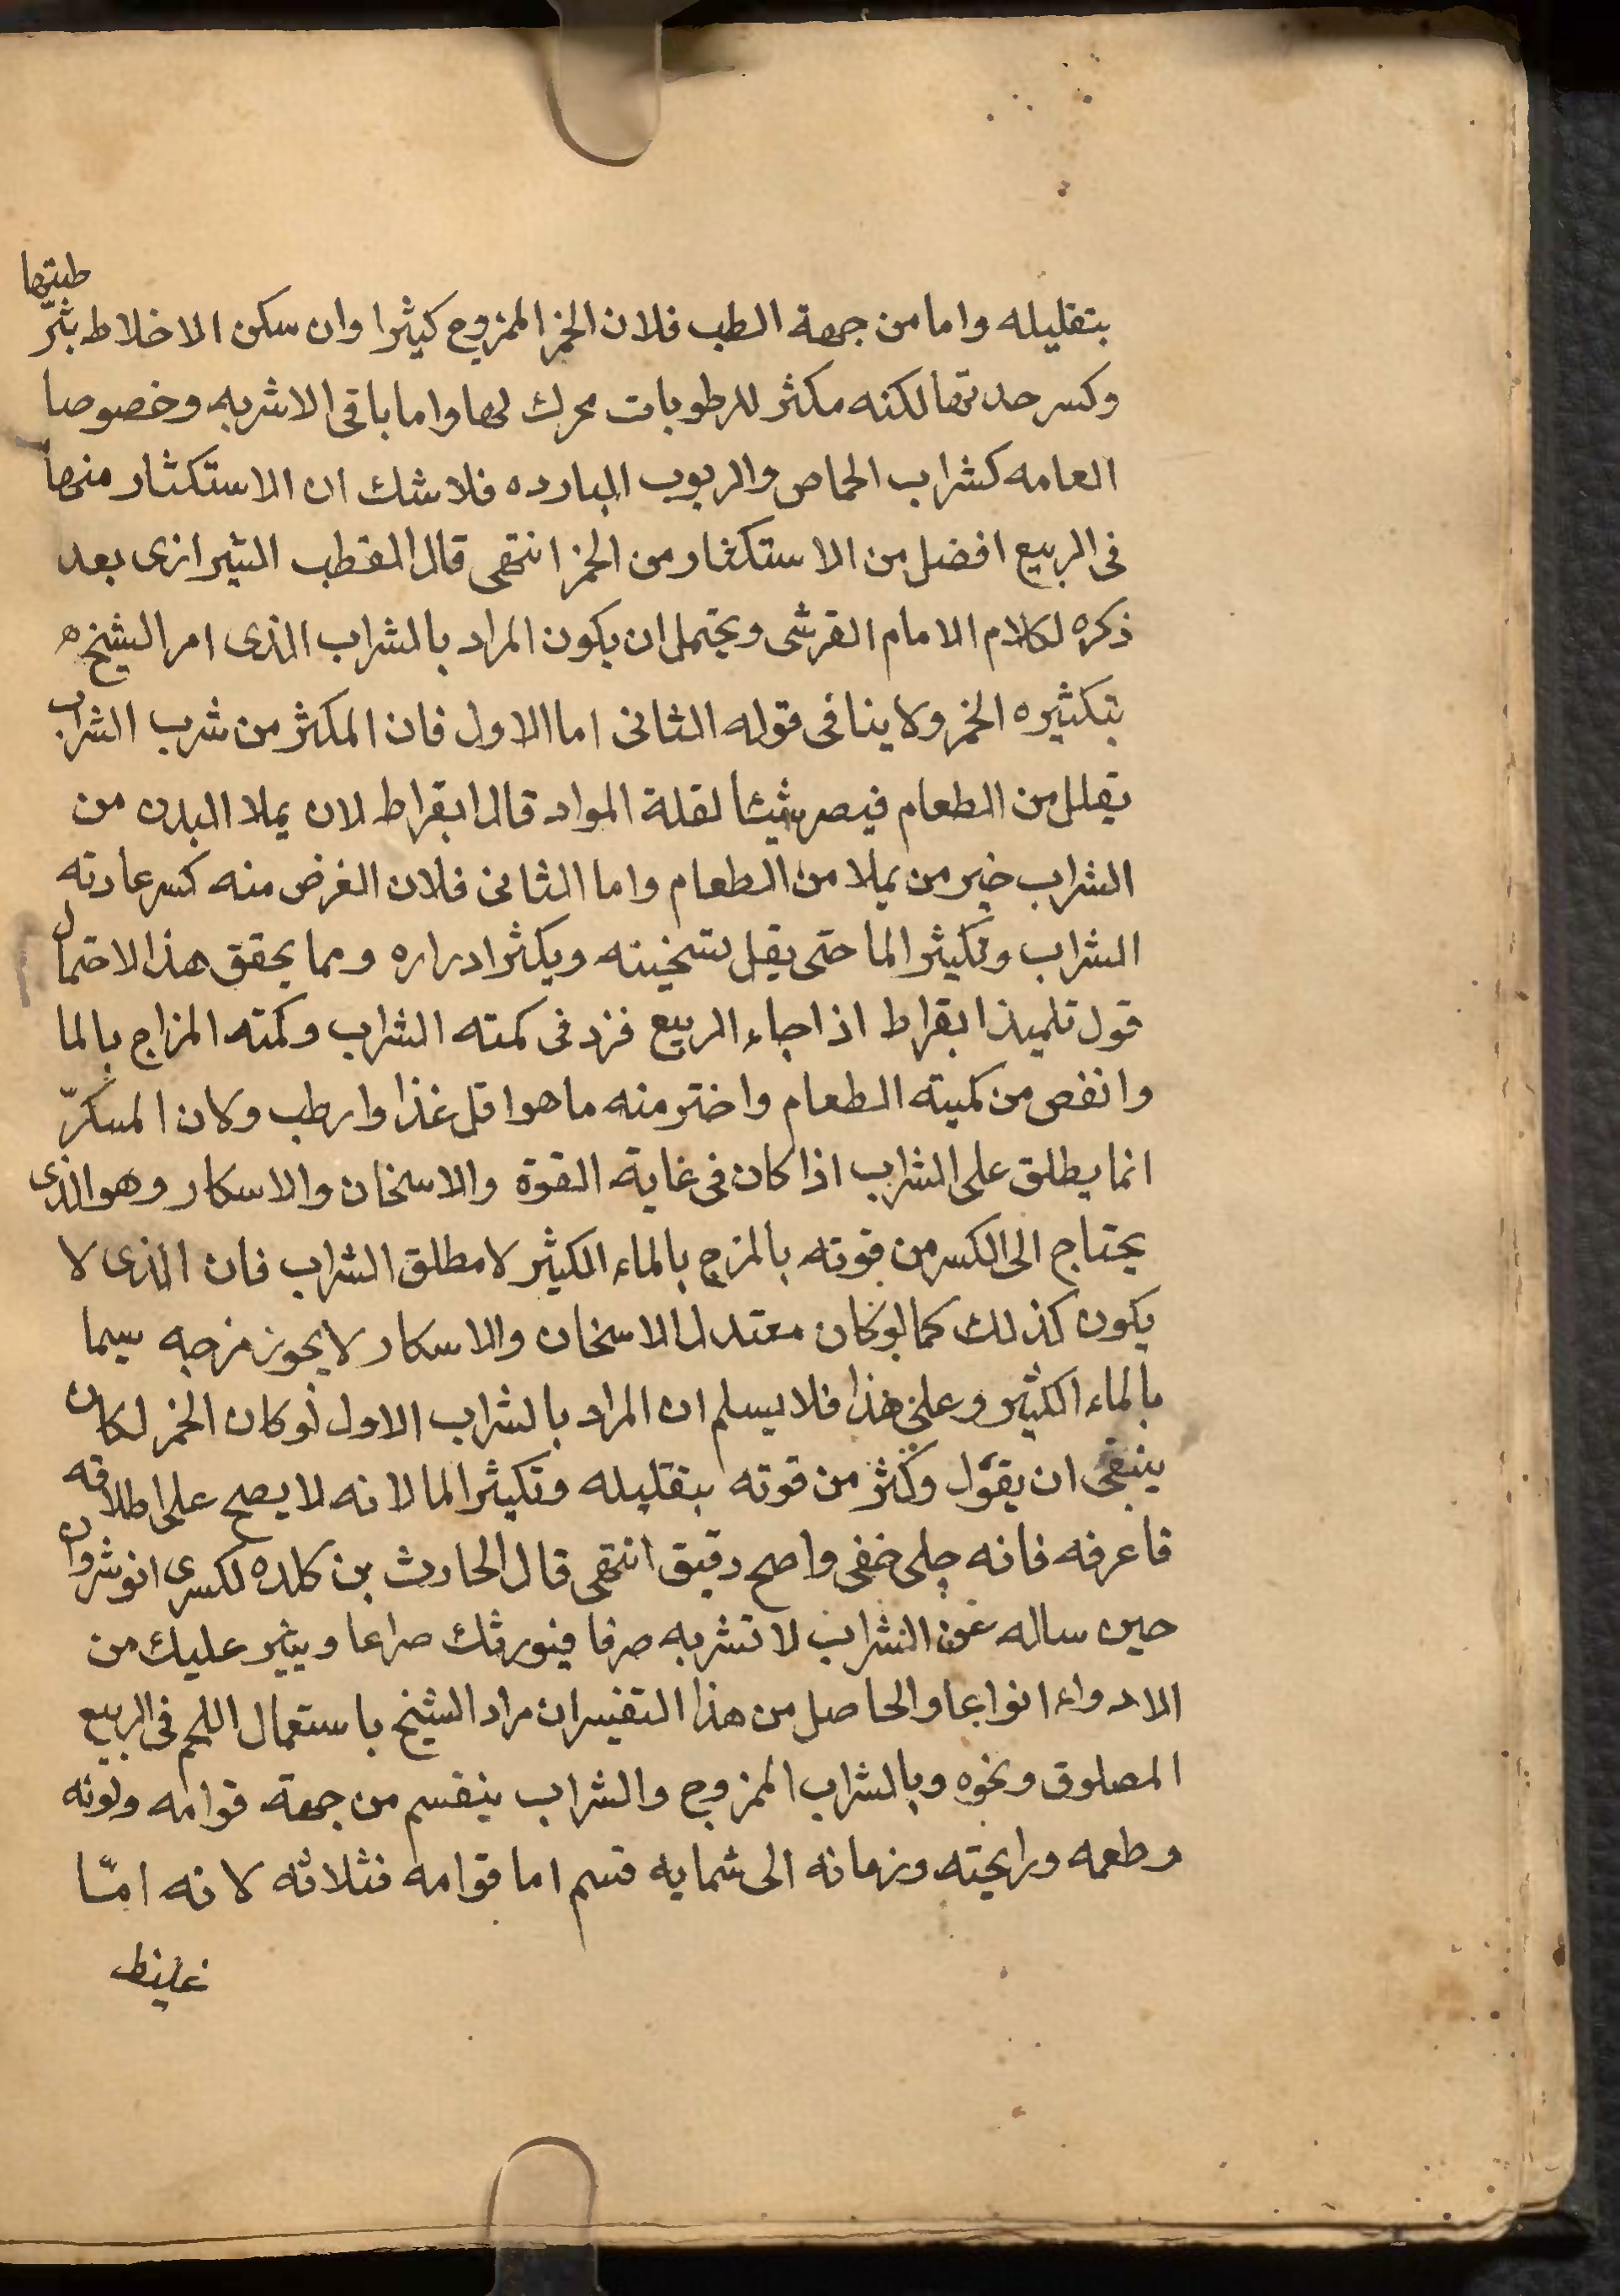 بتقليله واما من جهة الطب فلان الخمر الممزوج كثيرا وان سكن الاخلاط بترطيتها
وكسر حدتها لكنه مكثر للرطوبات محرك لها واما باقى الاشربه وخصوصا
العامه كشراب الحماص والربوب البارده فلا شك ان الاستكثار منها
فى الربيع افضل من الاستكثار من الخمر انتهى قال القطب الشيرازى بعد
ذكره لكلام الامام القرشى ويحتمل ان يكون المراد بالشراب الذى امر الشيخ
بتكثيره الخمر ولا ينافى قوله الثانى اما الاول فان المكثر من شرب الشراب
يقلل من الطعام فيصر شيئا لقلة المواد قال ابقراط لان يملا البدن من
الشراب خير من يملا من الطعام واما الثانى فلان الغرض منه كسر عادته
الشراب وتكثير الما حتى يقل تسخينه ويكثر ادراره ومما يحقق هذا الاحتمال
قول تلميذ ابقراط اذا جاء الربيع فزد فى كمته الشراب وكمته المزاج بالما
وانقص من كميته الطعام واختر منه ما هو اقل غذا وارطب وكان المسكر
انما يطلق على الشراب اذا كان فى غاية القوة والاسخان والاسكار وهو الذى
يحتاج الى الكسر من قوته بالمزج بالماء الكثير لا مطلق الشراب فان الذى لا
يكون كذلك كما لو كان معتدل الاسخان والاسكار لا يجوز مزجه سيما
بالماء الكثير وعلى هذا فلا يسلم ان المراد بالشراب الاول لو كان الخمر لكان
ينبغى ان يقول وكثر من قوته بتقليله وتكثير الما لانه لا يصح على اطلاقه
فاعرفه فانه جلى خفى واضح دقيق انتهى قال الحارث بن كلده لكسرى انوشروان
حين ساله عن الشراب لا تشربه صرفا فيورثك صداعا ويثير عليك من
الادواء انواعا والحاصل من هذا التفسير ان مراد الشيخ باستعمال اللحم فى الربيع
المصلوق ونحوه وبالشراب الممزوج والشراب ينقسم من جهة قوامه ولونه
وطعمه ورايحته وزمانه الى ثمايه قسم اما قوامه فثلاثه لانه امّا
غليظ